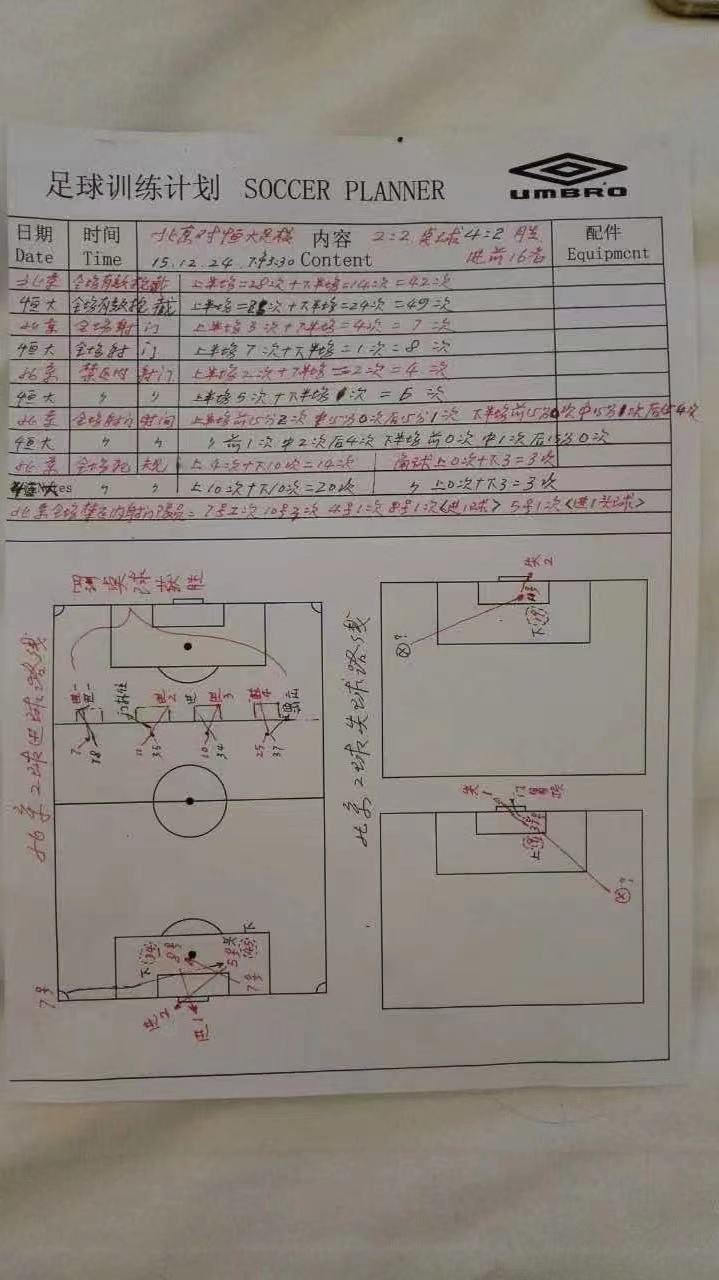 足球训练计划 SOCCER PLANNER
UMBRO
日期 时间 北京对恒大足球 内容 2=2 点球4=2 胜 配件
Date Time 15.12.24 下午3:30 Content 进前16名 Equipment
北京 全场有效抢截 上半场=28次+下半场=14次=42次
恒大 全场有效抢截 次+下半场=24次=49次
北京 全场射门 上半场3次+下半场=4次=7次
恒大 全场射门 上半场7次+下半场=1次=8次
北京 禁区内射门 上半场2次+下半场=2次=4次
恒大 〃 〃 上半场5次+下半场1次=6次
北京 全场射门时间 上半场前15分2次中15分0次后15分1次 下半场前15分0次中15分次后15 4次
恒大 〃 〃 〃前1次中2次后4次 下半场前0次中1次后15分0次
北京 全场犯规 上4次+下10次=14次 角球上0次+下3=3次
恒大 〃 〃 上10次+下10次=20次 〃上0次+下3=3次
北京全场禁区内射门队员=7号2次10号3次4号1次8号1次<进1球>5号1次<进1头球>
点球 胜
北京2球进球路线
进一
进一
7
28
进2
11
35
进
进3
10
34
4
25
37
7号
下
34
8号
5号头
下
7号
进2
进1
北京2球失球路线
失2
下
?
失1
门
上
?